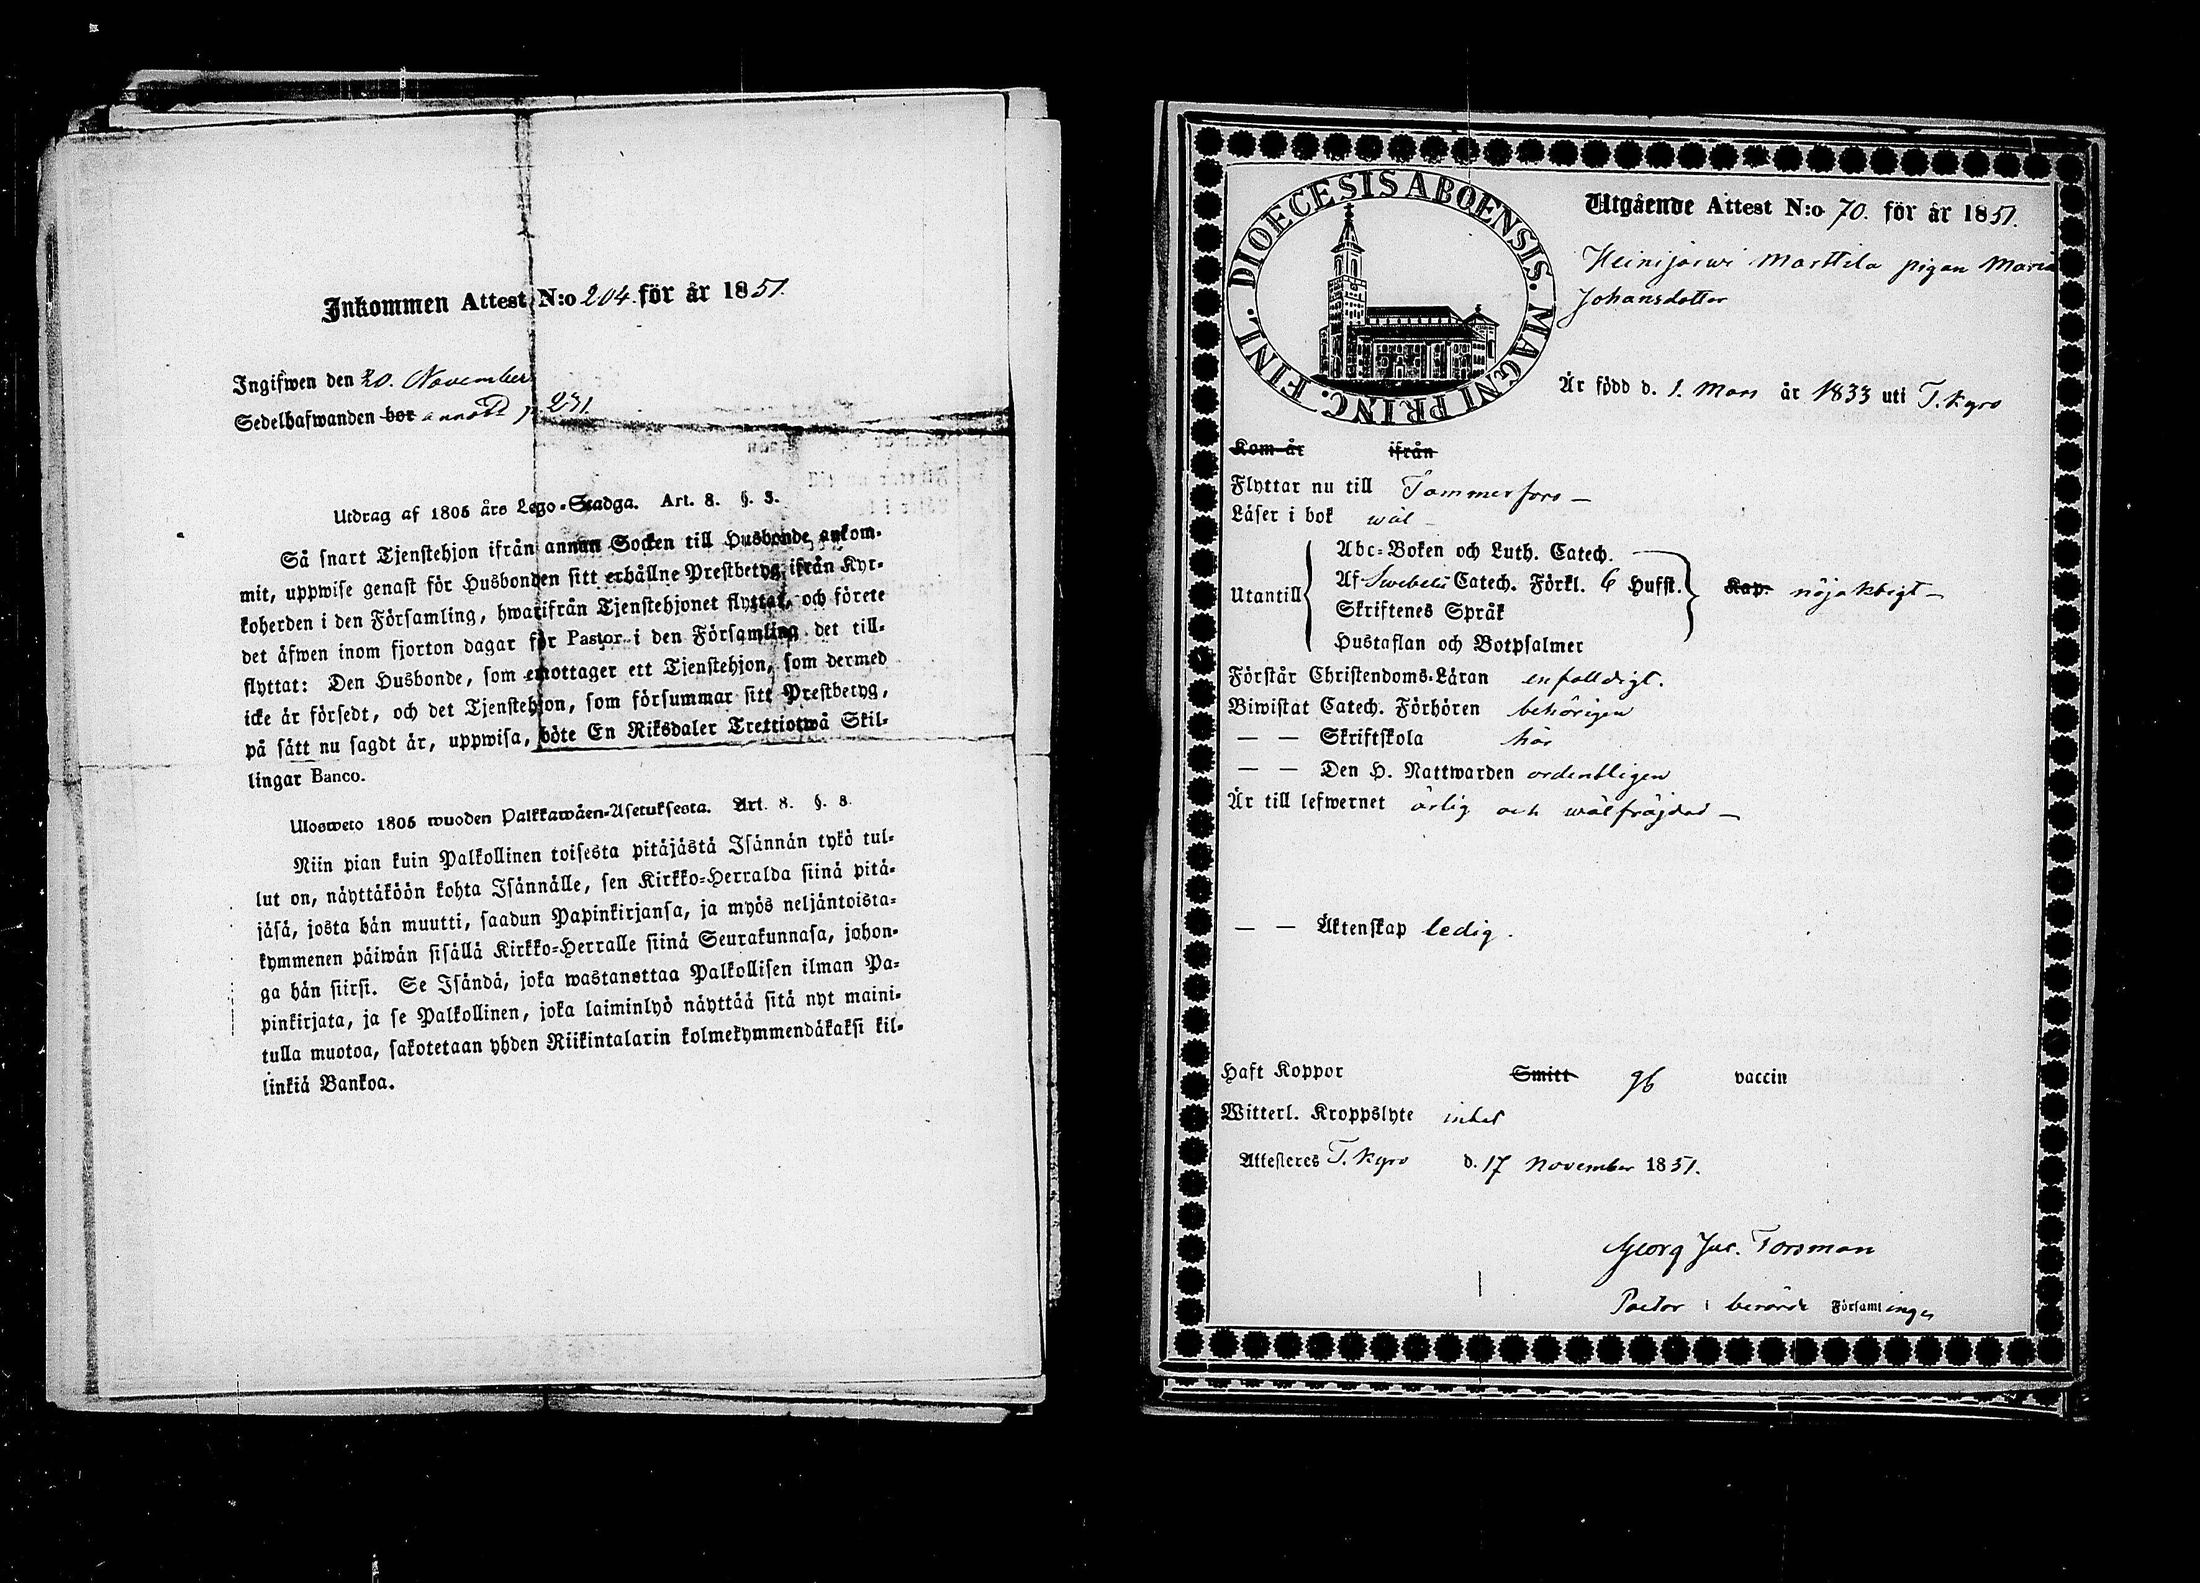 Inkommen Attest N:o 204. för år 1851.
Ingifwen den 20. November
Sedelhafwanden bor annot p. 231.
Utdrag af 1805 års Lego-Stadga. Art. 8. §. 3.
Så snart Tjenstehjon ifrån annan Socken till Husbonde ankom-
mit, uppwise genast för Husbonden sitt erhållne Prestbetyg ifrån Kyr-
koherden i den Församling, hwarifrån Tjenstehjonet flyttat, och förete
det äfwen inom fjorton dagar för Pastor i den Församling det till-
flyttat: Den Husbonde, som emottager ett Tjenstehjon, som dermed
icke är försedt, och det Tjenstehjon, som försummar sitt Prestbetyg,
på sätt nu sagdt är, uppwisa, böte En Riksdaler Trettiotwå Skil-
lingar Banco.
Ulosweto 1805 wuoden Palkkawäen-Asetuksesta. Art. 8. §. 3.
Niin pian kuin Palkollinen toisesta pitäjästä Isännän tykö tul-
lut on, näyttäköön kohta Isännälle, sen Kirkko-Herralda siinä pitä-
jäsä, josta hän muutti, saadun Papinkirjansa, ja myös neljäntoista-
kymmenen päiwän sisällä Kirkko-Herralle siinä Seurakunnasa, johon-
ga hän siirsi. Se Isändä, joka wastanottaa Palkollisen ilman Pa-
pinkirjata, ja se Palkollinen, joka laiminlyö näyttää sitä nyt maini-
tulla muotoa, sakotetaan yhden Riikintalarin kolmekymmendäkaksi kil-
linkiä Bankoa.
DIOECESIS ABOENSIS. MAGNI PRINC. FINL.
Utgående Attest N:o 70. för år 1851.
Heinijärwi Marttila pigan Maria
Johansdotter
Är född d. 1. Mars år 1833 uti T. kyro
Kom år ifrån
Flyttar nu till Tammerfors —
Läser i bok wäl —
Abc-Boken och Luth. Catech.
Utantill Af Swebelii Catech. Förkl. 6 Hufst. Kap. nöjaktigt —
Skriftenes Språk
Hustaflan och Botpsalmer
Förstår Christendoms-Läran enfaldigt.
Biwistat Catech. Förhören behörigen
— — Skriftskola här
— — Den H. Nattwarden ordentligen
Är till lefwernet ärlig och wälfräjdad —
— — Äktenskap ledig.
Haft Koppor Smitt gb vaccin
Witterl. Kroppslyte intet
Attesteres T. kyro d. 17 November 1851.
Georg Jac. Forsman
Pastor i berörde Församlinger